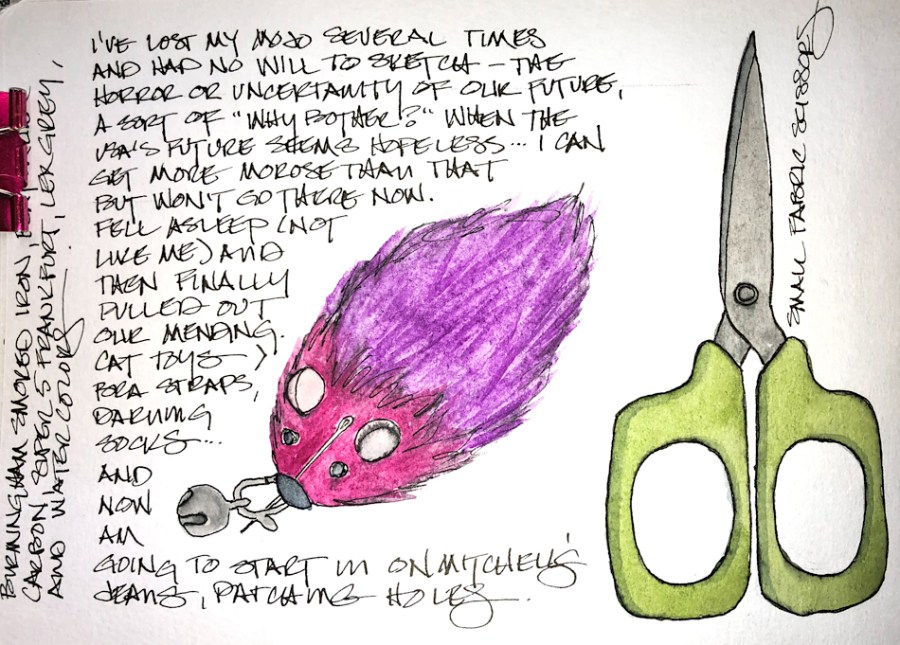 I'VE LOST MY MOJO SEVERAL TIMES
AND HAD NO WILL TO SKETCH – THE
HORROR OR UNCERTAINTY OF OUR FUTURE,
A SORT OF "WHY BOTHER?" WHEN THE
USA'S FUTURE SEEMS HOPELESS... I CAN
GET MORE MOROSE THAN THAT
BUT WON'T GO THERE NOW.
FELL ASLEEP (NOT
LIKE ME) AND
THEN FINALLY
PULLED OUT
OUR MENDING.
CAT TOYS,
BRA STRAPS,
DARNING
SOCKS...
AND
NOW
AM
GOING TO START IN ON MITCHELL'S
JEANS, PATCHING HOLES.
SMALL FABRIC SCISSORS
BIRMINGHAM SMOKED IRON,
CARBON, SUPER 5 FRANKFURT, LEXGREY,
AND WATERCOLORS